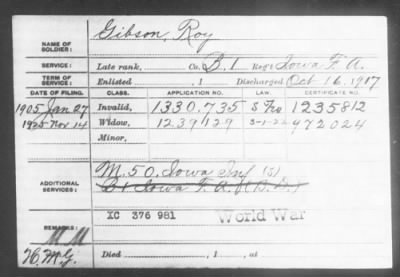 Gibson, Roy
NAME OF SOLDIER:
SERVICE: Late rank, Co. B. 1 Reg't Iowa F. A.
TERM OF SERVICE: Enlisted , 1 Discharged Oct 16, 1917
DATE OF FILING. CLASS. APPLICATION NO. LAW. CERTIFICATE NO.
1905 Jan 27 Invalid, 1330,735 1235812
1925 Nov 14 Widow, 1239129 3-1-22 972024
Minor,
ADDITIONAL SERVICES: M. 50, Iowa Inf (S)
B 1 Iowa F. A.
XC 376 981 World War
REMARKS: M M
Died , 1 , at